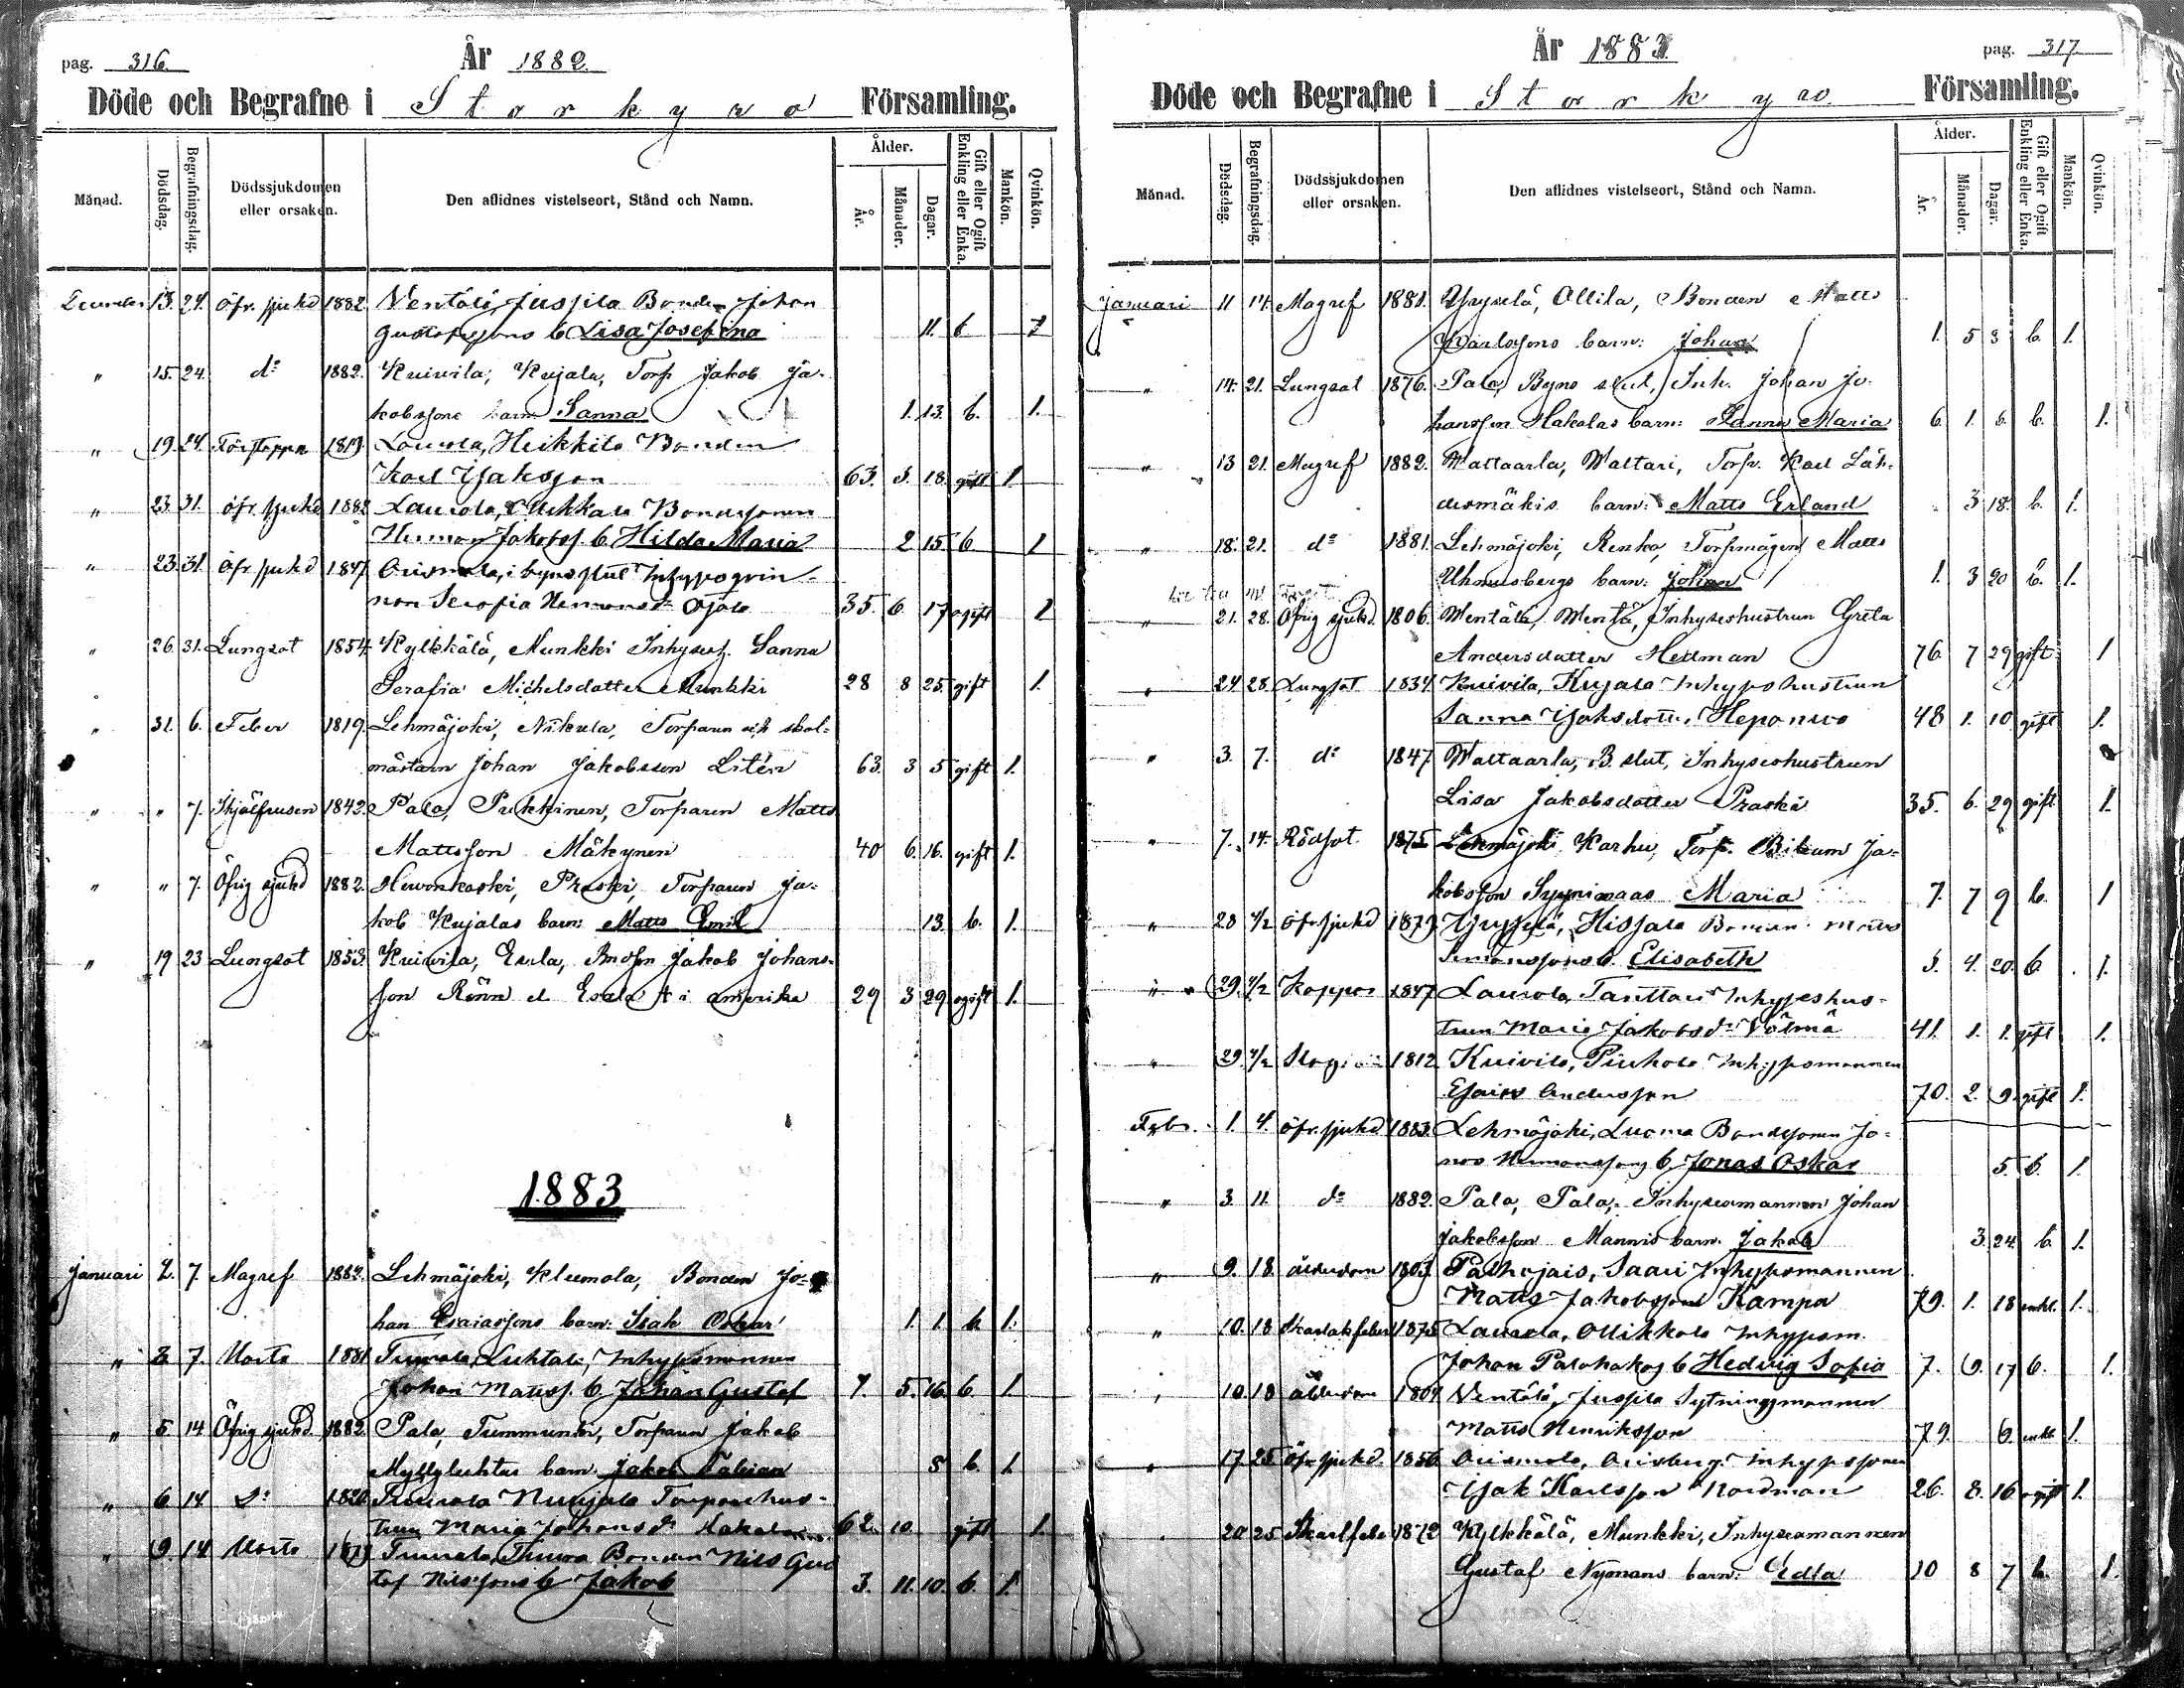 pag. 316.
År 1882.
Döde och Begrafne i Storkyro Församling.
Månad.
Dödsdag.
Begrafningsdag.
Dödssjukdomen eller orsaken.
Den aflidnes vistelseort, Stånd och Namn.
Ålder.
År.
Månader.
Dagar.
Gift eller Ogift Enkling eller Enka.
Mankön.
Qvinkön.
13. 24. Öfr. sjukd 1882. Ventälä, Juspila Bonden Johan
Gustafssons b Lisa Josefina 11. b 1
" 15. 24. do 1882. Kuivila, Kujala, Torp Jakob Ja-
kobssons barn Sanna 1. 13. b. 1.
" 19. 24. 1819 Laurola, Heikkilä Bonden
Karl Isaksson 63. 3. 18. gift 1.
" 23. 31. öfr. sjukd 1882 Laurola, Bondsonen
Herman Jakobss. b. Hilda Maria 2 15 b 1
" 23. 31. Öfr sjukd 1847 Orismala, i byns slut
non Serafia Ojala 35. 6. 17 ogift 1
" 26. 31. Lungsot 1854 Kylkkälä, Munkki Inhyseh. Sanna
Serafia Michelsdotter Munkki 28 8 25. gift 1.
" 31. 6. Feber 1819. Lehmäjoki, Nikula, Torparen och skol-
mästarn Johan Jakobsson Litén 63. 3 5 gift 1.
" " 7. 1842. Pala, Pukkinen, Torparen Matts
Mattsson Mäkynen 40 6. 16. gift 1.
" " 7. Öfrig sjukd 1882. Hevonkoski, Praski, Torparen Ja-
kob Kujalas barn: Matts Emil 13. b. 1.
" 19 23 Lungsot 1853. Kuivila, Esala, Jakob Johans-
son Rönn el Esala † i amerika 29 3 29 ogift 1.
1883
Januari 2. 7. Magref 1882. Lehmäjoki, Klemola, Bonden Jo-
han Esaiassons barn: Isak Oskar 1. 1. b. 1.
" 7. 1881 Luhtala, Inhysesmannen
Johan Matss. b. Johan Gustaf 1. 5. 16. b. 1.
" 5. 14 Öfrig sjukd. 1882. Pala, Tummunki, Torparen Jakob
Myllyluhtas barn Jakob Fabian 8 b. 1.
" 6 14 Do 1820. Torparehus-
trun Maria Johansdr 62. 10. gift 1.
" 9. 14 Bonden Nils Gus
taf Nilssons b Jakob 3. 11. 10. b. 1.
År 1883.
pag. 317
Döde och Begrafne i Storkyro Församling.
Månad.
Dödsdag.
Begrafningsdag.
Dödssjukdomen eller orsaken.
Den aflidnes vistelseort, Stånd och Namn.
Ålder.
År.
Månader.
Dagar.
Gift eller Ogift Enkling eller Enka.
Mankön.
Qvinkön.
Januari 11 14. Magref 1881. Yryselä, Ollila, Bonden Matts
Karlssons barn: Johan 1. 5 3 b. 1.
" 14. 21. Lungsot 1876. Pala, Byns slut, Inh. Johan Jo-
hansson Hakalas barn: Sanna Maria 6. 1. b. 1.
" 13 21. Magref 1882. Waltaarla, Waltari, Torp. Karl Läh-
desmäkis barn: Matts Erland 3 18. b. 1.
" 18. 21. do 1881. Lehmäjoki, Renko, Torpmågen Matts
barn: Johan 1. 3 20 b. 1.
" 21. 28. Öfrig sjukd. 1806. Wentälä, Inhyseshustrun Greta
Andersdotter Hedman 76. 7 29 gift 1
" 24 28. Lungsot 1834. Kuivila, Kujala Inhyseshustrun
Sanna Isaksdotter 48 1. 10 gift 1.
" 3. 7. do 1847 Waltaarla, B. slut, Inhyseshustrun
Lisa Jakobsdotter Praski 35. 6. 29 gift 1.
" 7. 14. Rödsot. 1875 Lehmäjoki Karhu, Torp. Ja-
kobsson Maria 7. 7 9 b. 1
" 28 4/2 öfr. sjukd Hissala Bonden
b. Elisabeth 4. 20. b. 1.
" 29. 4/2 Koppor Laurola Tanttari Inhyseshus-
trun Maria Jakobsdr 41. 1. 1. gift 1.
" 29. 4/2 1812 Kuivila, Inhysesmannen
Esaias Andersson 70. 2. 9. gift 1.
Febr. 1. 4. öfr. sjukd 1883. Lehmäjoki, Luoma Bondsonen Jo-
nas Hermanssons b. Jonas Oskar 5. b. 1.
" 3. 11. do 1882. Pala, Pala, Inhysesmannen Johan
Jakobsson Mannis barn: Jakob 3 24. b. 1.
" 9. 18. ålderdom 1803 Palhojais, Saari Inhysesmannen
Matts Jakobsson Kampa 79. 1. 18 enkl. 1.
" 10. 18 Skarlakfeber 1875 Laurola, Ollikkala Inhysesm.
Johan b Hedvig Sofia 7. 17 b. 1.
10. 18 ålderdom Ventälä, Juspila Sytningsmannen
Matts Henriksson 79. 6. enkl. 1.
" 17. 25 Öfr. sjukd. 1856 Orismala,
Isak Karlsson Nordman 26. 8. 16. ogift 1.
20 25 1872 Kylkkälä, Munkki, Inhysesmannen
Gustaf Nymans barn: Edla 10 8 7 b. 1.